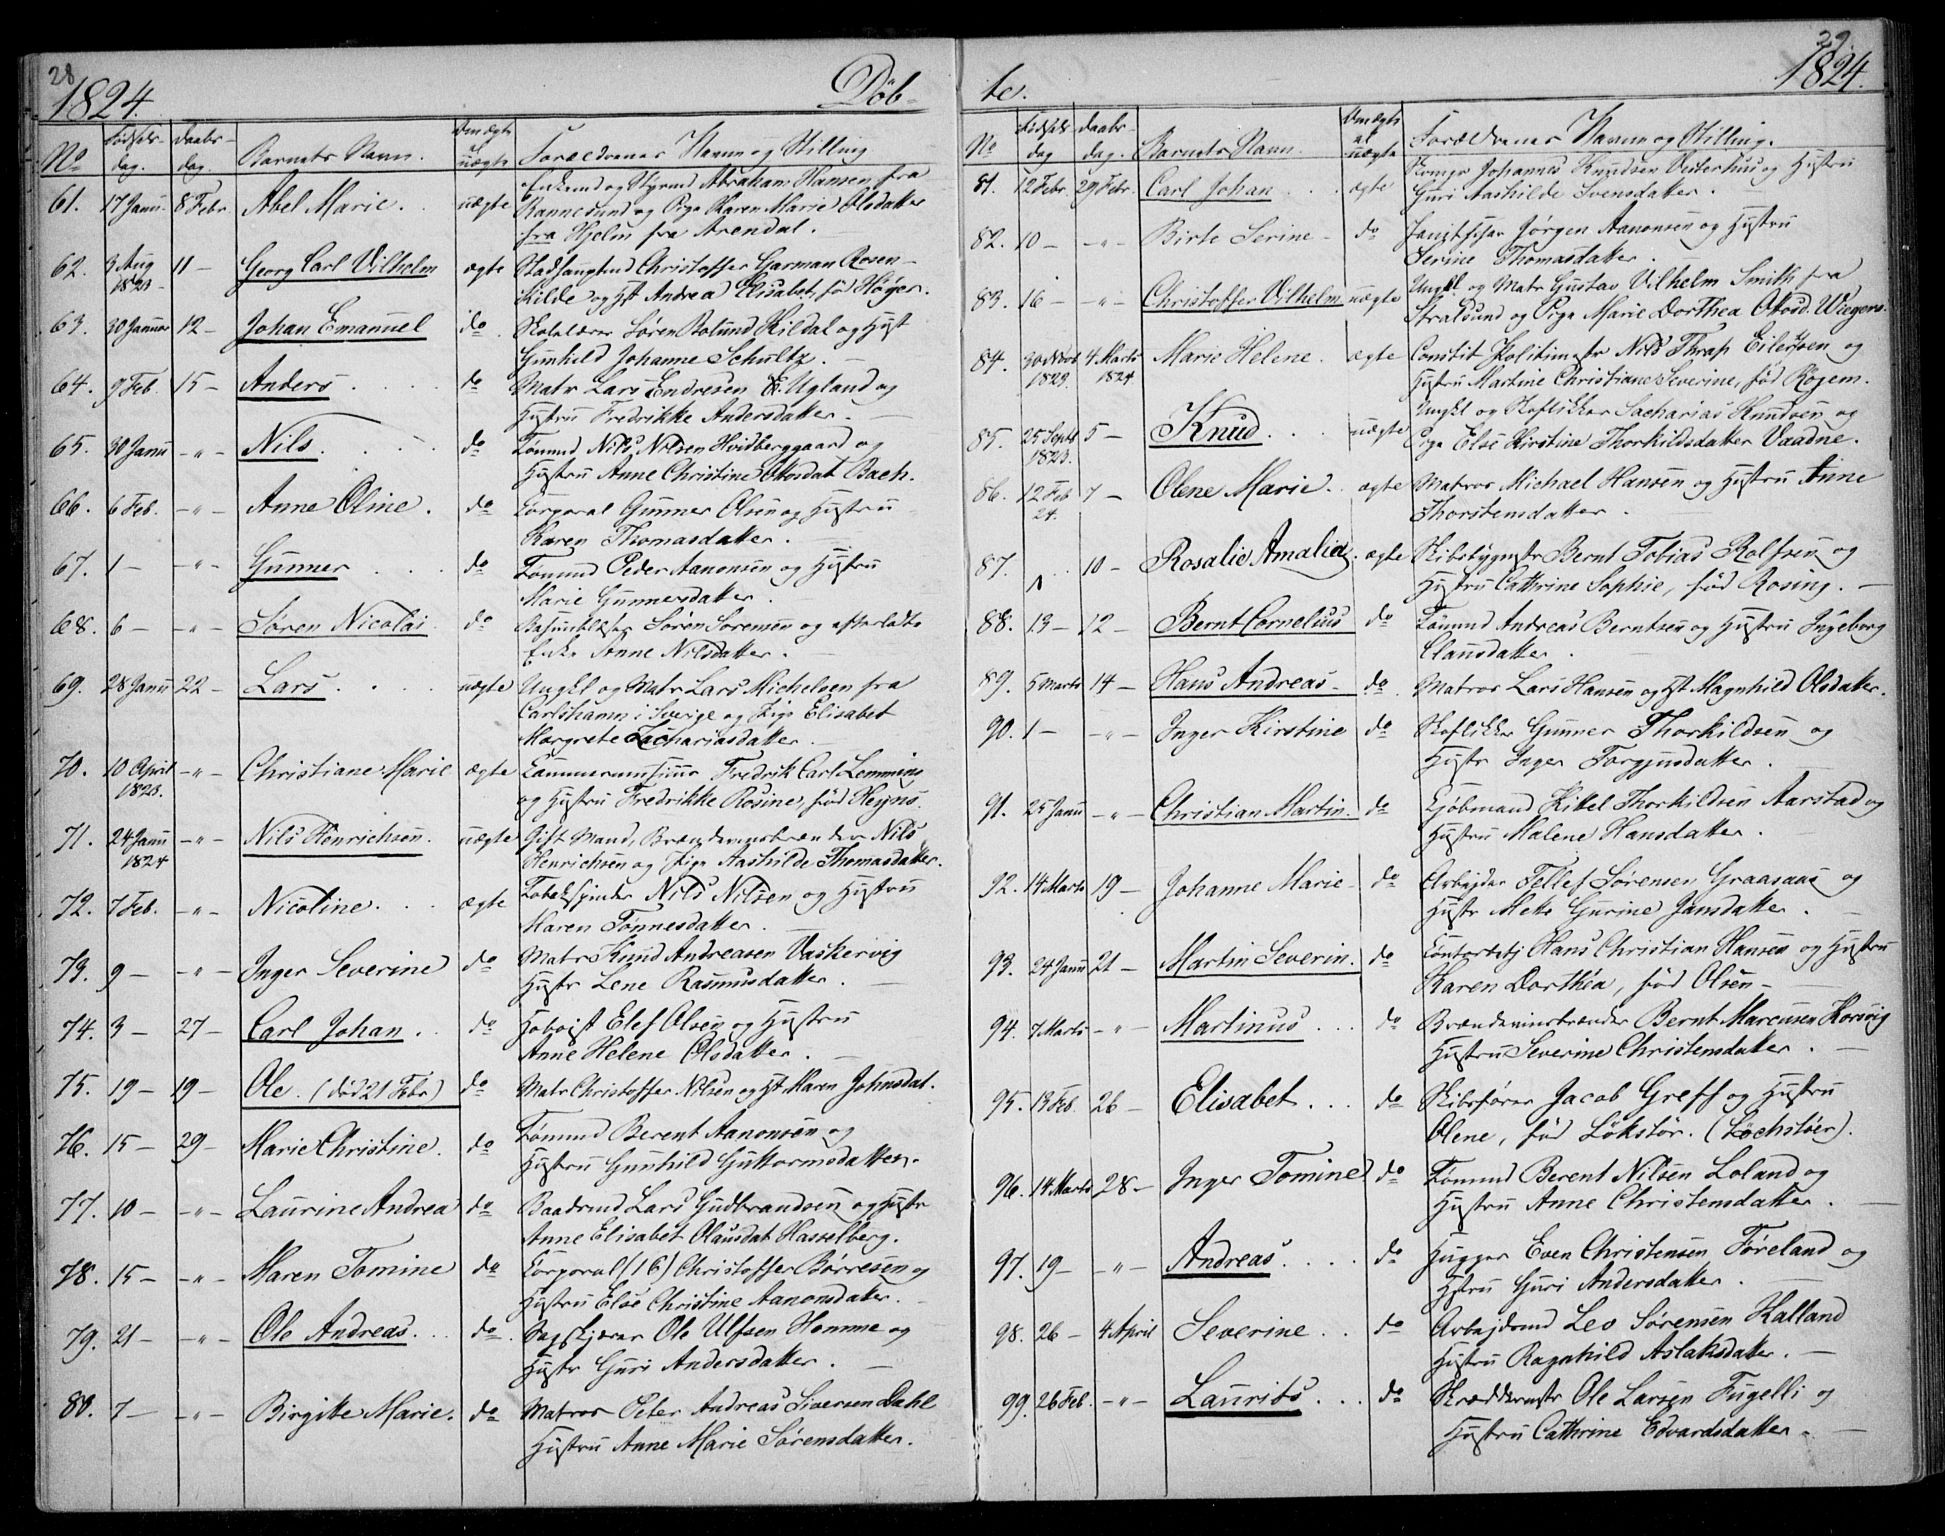 28
1824. Döb-
No Fødsels-dag. Daabs-dag. Barnets Navn. Om ægte el uægte Forældrenes Navn og Stilling
61. 17 Janu. 8 Febr Abel Marie. uægte Enkemd og Styrmd Abraham Hansen fra
Rannesund og Pige Karen Marie Olsdatter
fra Hjelm fra Arendal.
62. 3 Aug 1823 11 - Georg Carl Vilhelm ægte Stadshauptmd Christoffer Garman Rosen-
kilde og Hst Andrea Elisabet, fød Høyer.
63. 30 Januar 12 - Johan Emanuel do Skolelærer Søren Rolund Kildal og Hust
Gunhild Johanne Schultz.
64. 9 Feb. 15 - Anders do Matr Lars Endresen E. Ugland og
Hustru Fredrikke Andersdatter.
65. 30 Janu -"- Nils. do Tømmd Nils Nilsen Hvidberggaard og
Hustru Anne Christine Ottosdat Bach.
66. 6 Feb. -"- Anne Oline. do Corporal Gunner Olsen og Hustru
Karen Thomasdatter.
67. 1 - -"- Gunner do Tømmd Peder Aanonsen og Hustru
Marie Gunnersdatter.
68. 6 - -"- Søren Nicolai do Søren Sørensen og efterladte
Enke Anne Nilsdatter.
69. 28 Janu 22 - Lars. uægte Ungkl og Matr Lars Michelsen fra
Carlshamn i Sverige og Pige Elisabet
Margrete Zachariasdatter
70. 10 April 1823. -"- Christiane Marie ægte Fredrik Carl Lemming
og Hustru Fredrikke Rosine, fød Heyns.
71. 24 Janu 1824 -"- Nils Henrichsen. uægte Gift Mand, Brændevinsbrænder Nils
Henrichsen og Pige Aashilde Thomasdatter.
72. 7 Feb. -"- Nicoline. ægte Tobakspinder Nils Nilsen og Hustru
Maren Tønnesdatter.
73. 9 - -"- Inger Severine do Matr Knud Andreasen Vaskervig
Hustr Lene Rasmusdatter.
74. 3 - 27 - Carl Johan. do Hoboist Elef Olsen og Hustru
Anne Helene Olsdatter.
75. 19 - 19 - Ole. (død 21 Febr) do Matr Christoffer Nilsen og Hst Karen Johnsdat.
76. 15 - 29 - Marie Christine. do Tømmd Berent Aanonsen og
Hustru Gunhild Guttormsdatter.
77. 10 - -"- Laurine Andrea do Baadsmd Lars Gudbrandsen og Hustr
Anne Elisabet Olausdat Hasselberg.
78. 15 - -"- Maren Tomine do Corporal (16) Christoffer Børresen og
Hustru Else Christine Aanonsdatter.
79. 21 - -"- Ole Andreas. do. Ole Ulfsen Homme og
Hustr Guri Andersdatter.
80. 7 - -"- Birgitte Marie. do Matros Peter Andreas Siversen Dahl
Hustru Anne Marie Sørensdatter.
29.
te. 1824.
No Fødsels dag Daabs-dag. Barnets Navn. Om ægte el uægte Forældrenes Navn og Stilling.
81. 12 Febr. 29 Febr. Carl Johan ægte Johannes Knudsen Vesterhus og Hustru
Guri Aashilde Svensdatter.
82. 10 - -"- Birte Serine - do Jørgen Aanonsen og Hustru
Serine Thomasdatter.
83. 16 - -"- Christoffer Vilhelm uægte Ungkl og Matr Gustav Vilhelm Smith fra
Stralsund og Pige Marie Dorthea Ottosd. Wiegers.
84. 30 Novb 1823. 4 Marts 1824 Marie Helene. ægte Constit Politimstr Nils Thrap Eilertsen og
Hustru Martine Christiane Severine, fød Rogem.
85. 25 Septb 1823. 5 - Knud. uægte Ungkl og Skoflikker Sacharias Knudsen og
Pige Else Kirstine Thorkildsdatter Vaadne.
86. 12 Feb 24. 7 - Olene Marie. ægte Matros Michael Hansen og Hustru Anne
Thorstensdatter.
87. 10 - Rosalie Amalia. ægte Skibsbygmstr Bernt Tobias Rolfsen og
Hustru Cathrine Sophie, fød Rosing.
88. 13 - 12 - Bernt Cornelius do Tømmd Andreas Berntsen og Hustru Ingeborg
Clausdatter.
89. 5 Marts 14 - Hans Andreas - do Matros Lars Hansen og Hst Magnhild Olsdatter.
90. 1 - -"- Inger Kirstine do Skoflikker Gunner Thorkildsen og
Hustr Inger Torgjusdatter.
91. 25 Janu -"- Christian Martin. do Kjöbmand Kittel Thorkildsen Aarstad og
Hustru Malene Hansdatter.
92. 14 Marts 19 - Johanne Marie - do Arbejder Tellef Sørensen Graasaas og
Hustr Mette Gurine Jansdatter.
93. 24 Janu 21 - Martin Severin. do Contorbetj Hans Christian Hansen og Hustru
Karen Dorthea, fød Olsen -
94. 7 Marts -"- Martinus do Brændevinsbrænder Bernt Marcusen Korsvig
Hustru Severine Christensdatter.
95. 13 Feb. 26 - Elisabet. do Skibsfører Jacob Greff og Hustru
Olene, fød Lökstör. (Löchstöer).
96. 14 Marts 28 - Inger Tomine do Tømmd Berent Nilsen Loland og
Hustru Anne Christensdatter.
97. 19 - -"- Andreas. do Hugger Even Christensen Føreland og
Hstru Guri Andersdatter.
98. 26 - 4 April Severine do Arbejdsmd Leo Sørensen Kalland
Hustru Ragnhild Aslaksdatter.
99. 26 Feb. -"- Laurits. do Skræddermstr Ole Larsen Fugelli og
Hustru Cathrine Edvardsdatter.